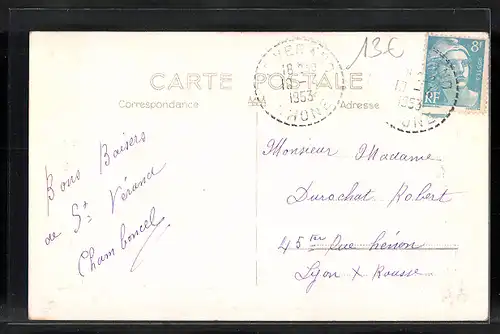 13€
CARTE POSTALE
Correspondance
Adresse
VERAND
18
1953
RHONE
1953
8F
RF
Bons Baisers
de St Vérand
Chamboncel
Monsieur Madame
Durochat Robert
45 Rue hénon
Lyon X Rousse